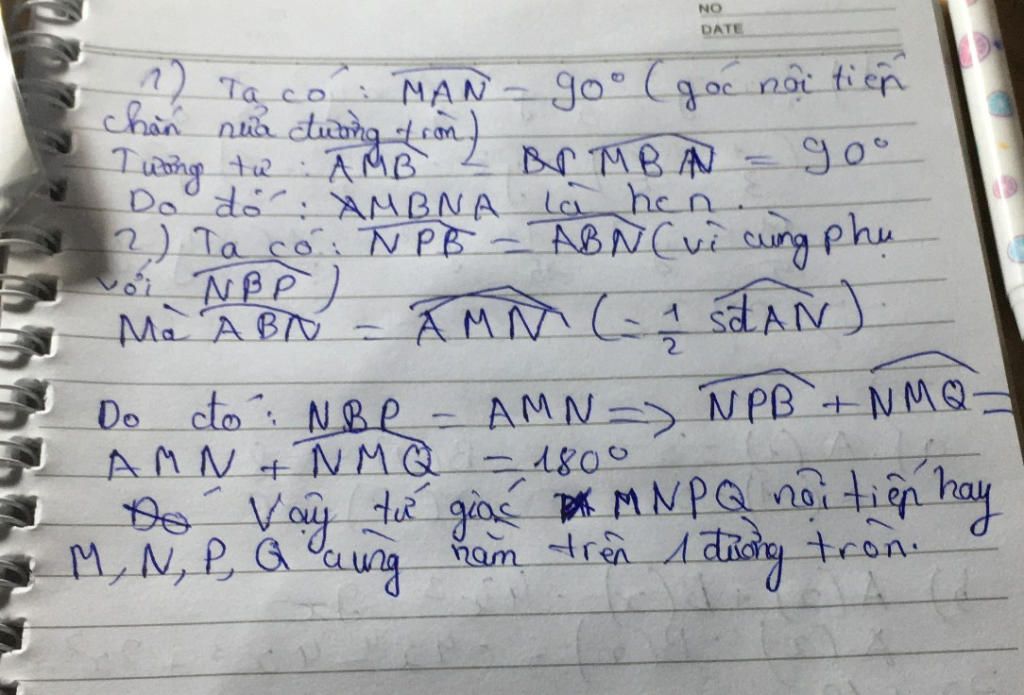 NO
DATE
1) Ta có : MAN = 90° (góc nội tiếp
chắn nửa đường tròn)
Tương tự : AMB = MBN = 90°
Do đó : AMBNA là hcn.
2) Ta có : NPB = ABN (vì cùng phụ
với NBP)
Mà ABN = AMN (= 1/2 sđ AN)
Do đó : NBP = AMN => NPB + NMQ =
AMN + NMQ = 180°
Vậy tứ giác MNPQ nội tiếp hay
M, N, P, Q cùng nằm trên 1 đường tròn.